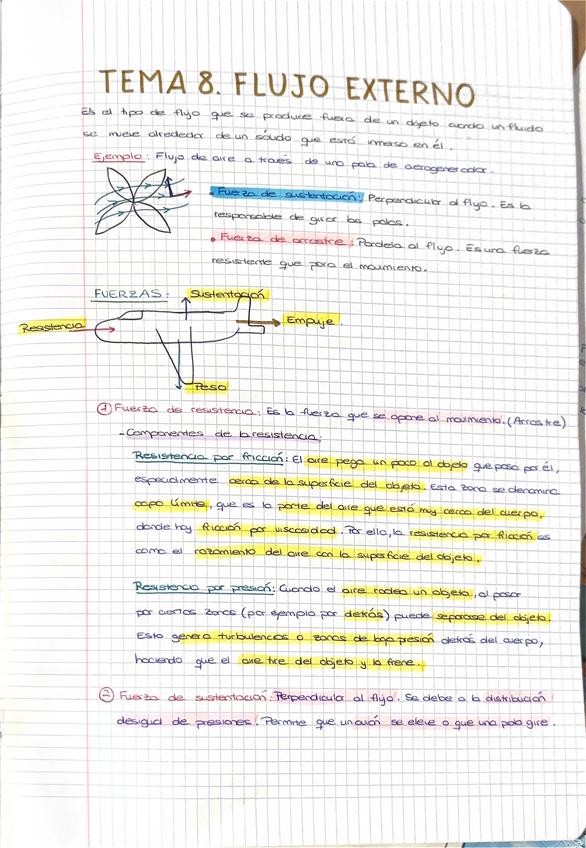 TEMA 8. FLUJO EXTERNO
Es el tipo de flujo que se produce fuera de un objeto cuando un fluido
se mueve alrededor de un sólido que está inmerso en él.
Ejemplo: Flujo de aire a través de una pala de aerogenerador.
• Fuerza de sustentación: Perpendicular al flujo. Es la
responsable de girar las palas.
• Fuerza de arrastre: Paralela al flujo. Es una fuerza
resistente que para el movimiento.
FUERZAS: Sustentación
Resistencia
Empuje.
Peso
① Fuerza de resistencia: Es la fuerza que se opone al movimiento. (Arrastre)
- Componentes de la resistencia:
Resistencia por fricción: El aire pega un poco al objeto que pasa por él,
especialmente cerca de la superficie del objeto. Esta zona se denomina
capa límite, que es la parte del aire que está muy cerca del cuerpo,
donde hay fricción por viscosidad. Por ello, la resistencia por fricción es
como el rozamiento del aire con la superficie del objeto.
Resistencia por presión: Cuando el aire rodea un objeto, al pasar
por ciertas zonas (por ejemplo por detrás) puede separarse del objeto.
Esto genera turbulencias o zonas de baja presión detrás del cuerpo,
haciendo que el aire tire del objeto y lo frene.
② Fuerza de sustentación: Perpendicular al flujo. Se debe a la distribución
desigual de presiones. Permite que un avión se eleve o que una pala gire.